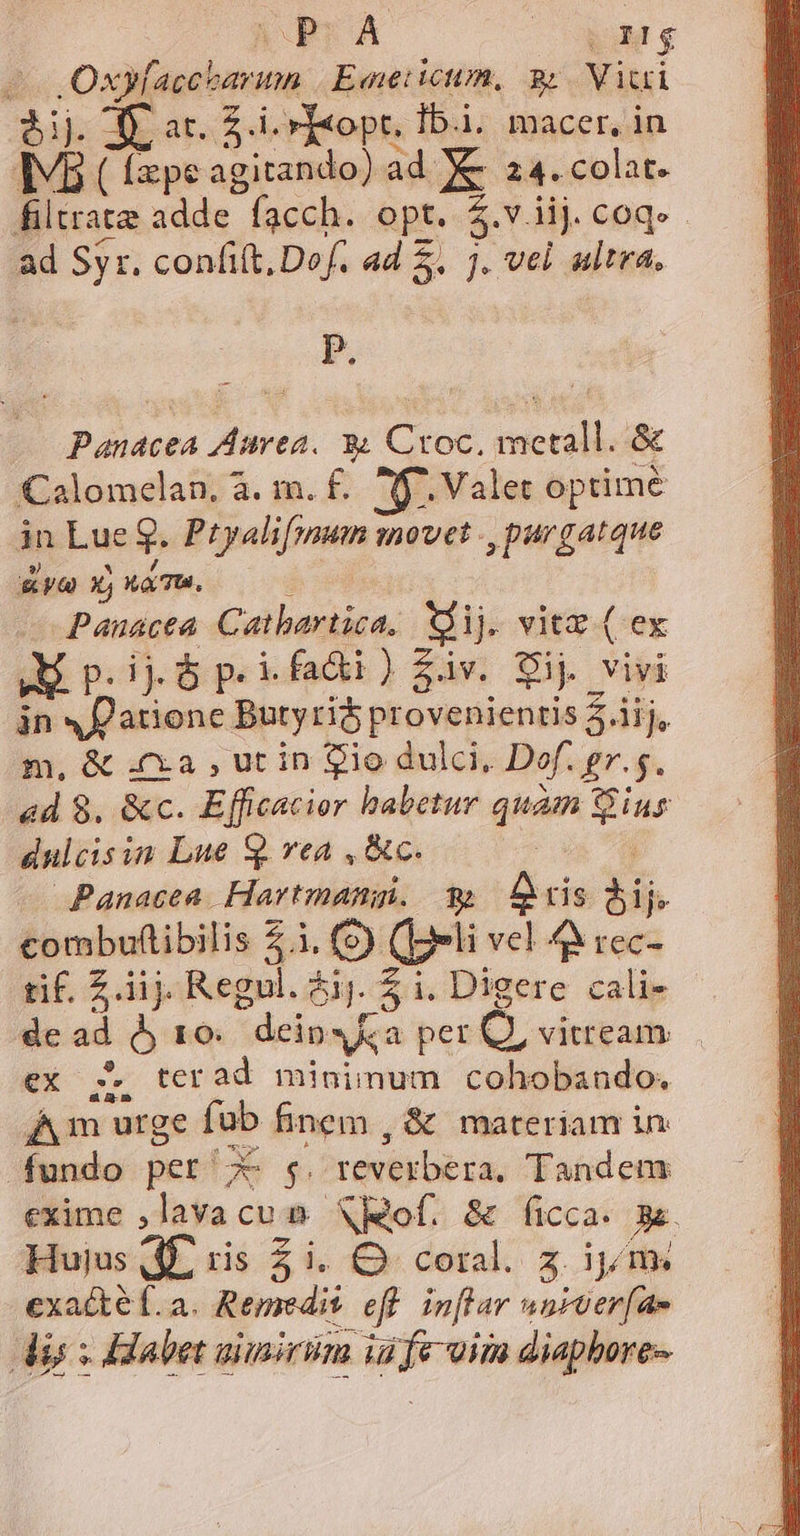 P A 115
Oxyſaccharum Emeticum, ℞ Vitri
♁ij. 🜿 at. ℥.i. opt. ℔.i. macer. in
MB ( ſæpe agitando) ad 24. colat.
filtratæ adde ſacch. opt. ℥.v iij. coq.
ad Syr. conſiſt. Doſ. ad ℥. j. vel ultra.
P.
Panacea Aurea. ℞ Croc. metall. &
Calomelan. ā. m. f. . Valet optimè
in Lue ♀. Ptyaliſmum movet, purgatque
ἄνω ϗ κάτω.
Panacea Cathartica. ☿ij. vitæ ( ex
p. ij. ♁ p. i. facti ) ℥iv. ☿ij. vivi
in atione Butyri♁ provenientis ℥.iij.
m. & a, ut in ☿io dulci, Doſ. gr. 5.
ad 8. &c. Efficacior habetur quàm ☿ius
dulcis in Lue ♀ rea, &c.
Panacea Hartmanni. ℞ ris ♁ij.
combuſtibilis ℥.i. li vel rec-
tif. ℥.iij. Regul. ♁ij. ℥ i. Digere cali-
de ad 10. dein a per vitream
ex ter ad minimum cohobando.
m urge ſub finem, & materiam in
fundo per 5. reverbera. Tandem
exime, lava cum oſ. & ſicca. ℞
Hujus ris ℥ i. coral. ʒ. ij. m.
exactè ſ. a. Remedii eſt inſtar univerſa-
lis : Habet nimirùm in ſe vim diaphore-